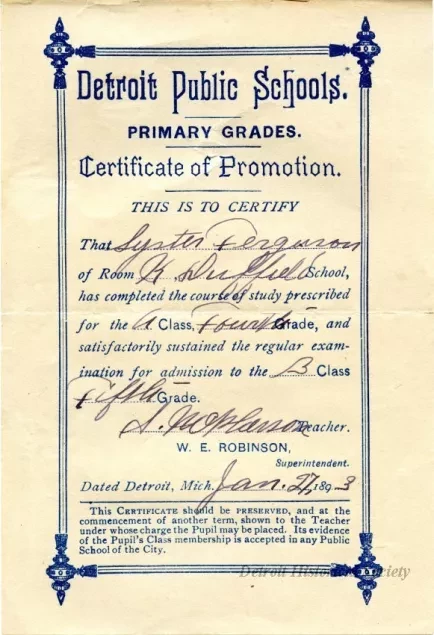 Detroit Public Schools.
PRIMARY GRADES.
Certificate of Promotion.
THIS IS TO CERTIFY
That Lyster Ferguson
of Room K Duffield School,
has completed the course of study prescribed
for the A Class, Fourth Grade, and
satisfactorily sustained the regular exam-
ination for admission to the B Class
Fifth Grade.
S. Teacher.
W. E. ROBINSON,
Superintendent.
Dated Detroit, Mich. Jan. 27, 1893
This CERTIFICATE should be PRESERVED, and at the
commencement of another term, shown to the Teacher
under whose charge the Pupil may be placed. Its evidence
of the Pupil's Class membership is accepted in any Public
School of the City.
Detroit Historical Society